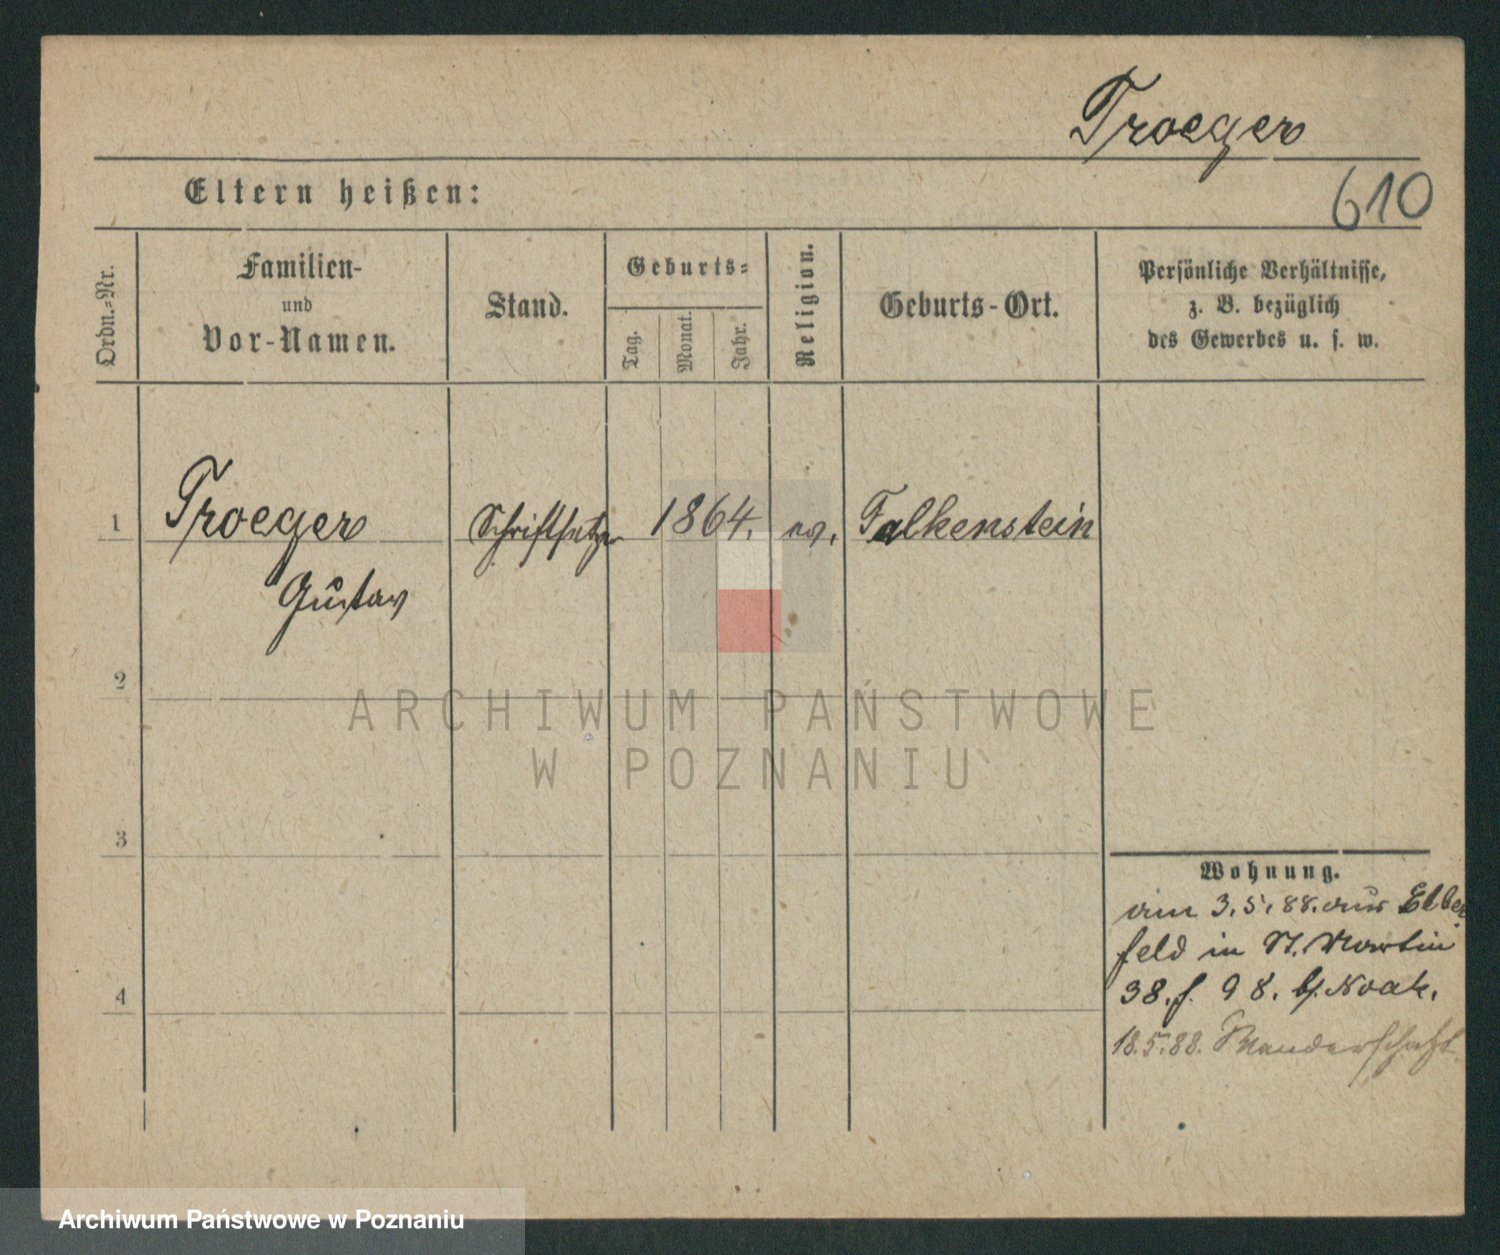 Troeger
610
Eltern heißen:
Ordn.-Nr.
Familien-
und
Vor-Namen.
Stand.
Geburts-
Tag.
Monat.
Jahr.
Religion.
Geburts-Ort.
Persönliche Verhältnisse,
z. B. bezüglich
des Gewerbes u. s. w.
1
Troeger
Gustav
Schriftsetzer
1864.
ev.
Falkenstein
2
ARCHIWUM PAŃSTWOWE
W POZNANIU
3
4
Wohnung.
am 3.5.88. aus Elber
feld in St. Martin
38. f. 98. b/. Noak.
18.5.88. Wanderschaft
Archiwum Państwowe w Poznaniu